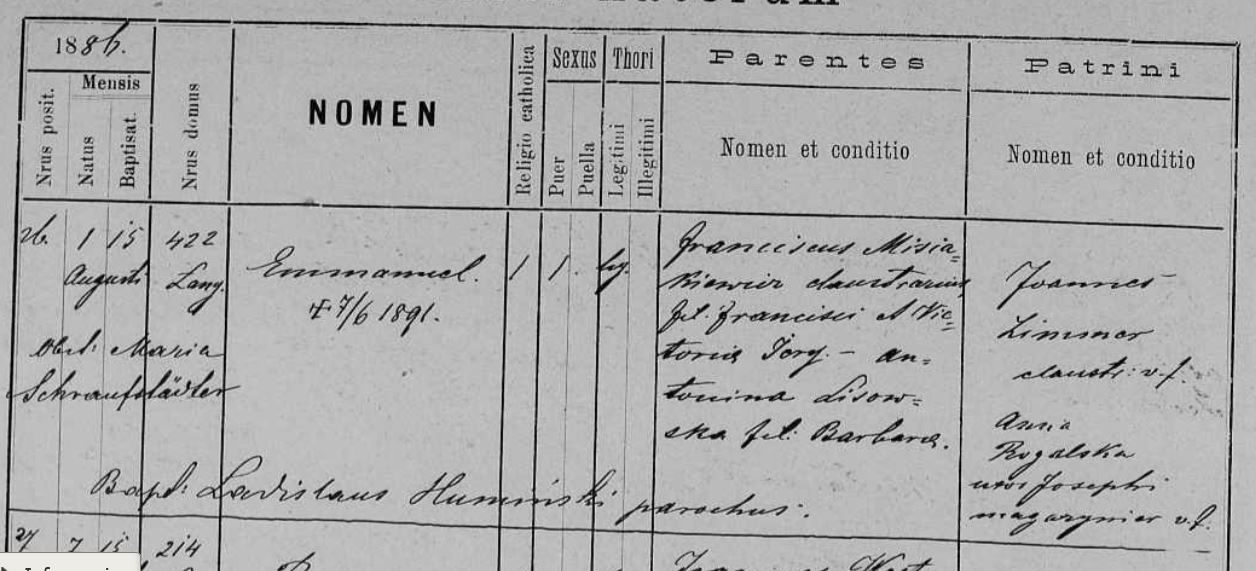 1886.
Nrus posit.
Mensis
Natus
Baptisat.
Nrus domus
NOMEN
Religio catholica
Sexus
Puer
Puella
Thori
Legitimi
Illegitimi
Parentes
Nomen et conditio
Patrini
Nomen et conditio
26. 1 15 422
Augusti Lang.
Obst: Maria
Schraufstädter
Emmanuel.
7/6 1891.
1 1. leg.
Franciscus Misia-
kiewicz claustrarius,
fil. Francisci et Vic-
toriæ Jorg. – An-
tonina Lisow-
ska fil: Barbaræ.
Joannes
Zimmer
claustr: v. f.
Anna
Rogalska
uxor Josephi
magazynier v. f.
Bapt: Ladislaus Humiński parochus.
27 7 15 214